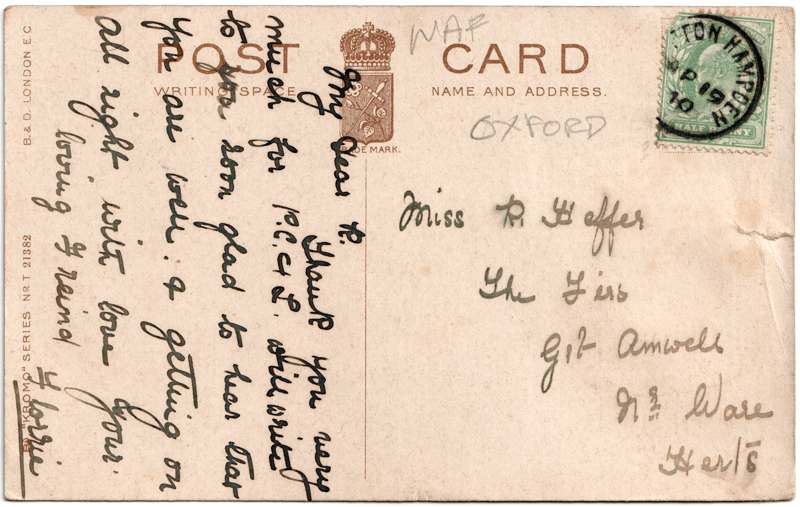 POST CARD
WRITING SPACE
NAME AND ADDRESS.
TRADE MARK.
WAF
OXFORD
TON HAMPDEN
SP 19
10
HALFPENNY
My Dear R.
Thank you very
much for P.C & L. will write
to you soon glad to hear that
you are well. & getting on
all right with love your
loving Freind Florrie
Miss R Heffer
The Firs
Gt Amwell
Nr Ware
Herts
B. & D. LONDON E.C.
"KROMO" SERIES No T 21382